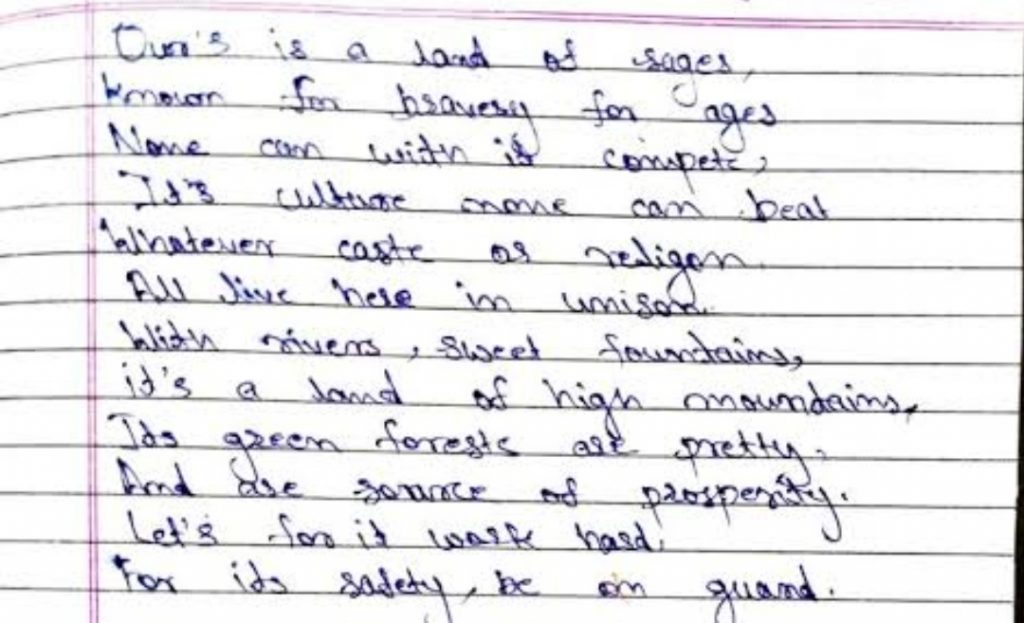 Our's is a land of sages,
known for bravery for ages
None can with it compete,
It's culture none can beat
Whatever caste or religon.
All live here in unison.
With rivers, sweet fountains,
it's a land of high mountains,
Its green forests are pretty,
And are source of prosperity.
Let's for it work hard.
For its safety, be on guard.